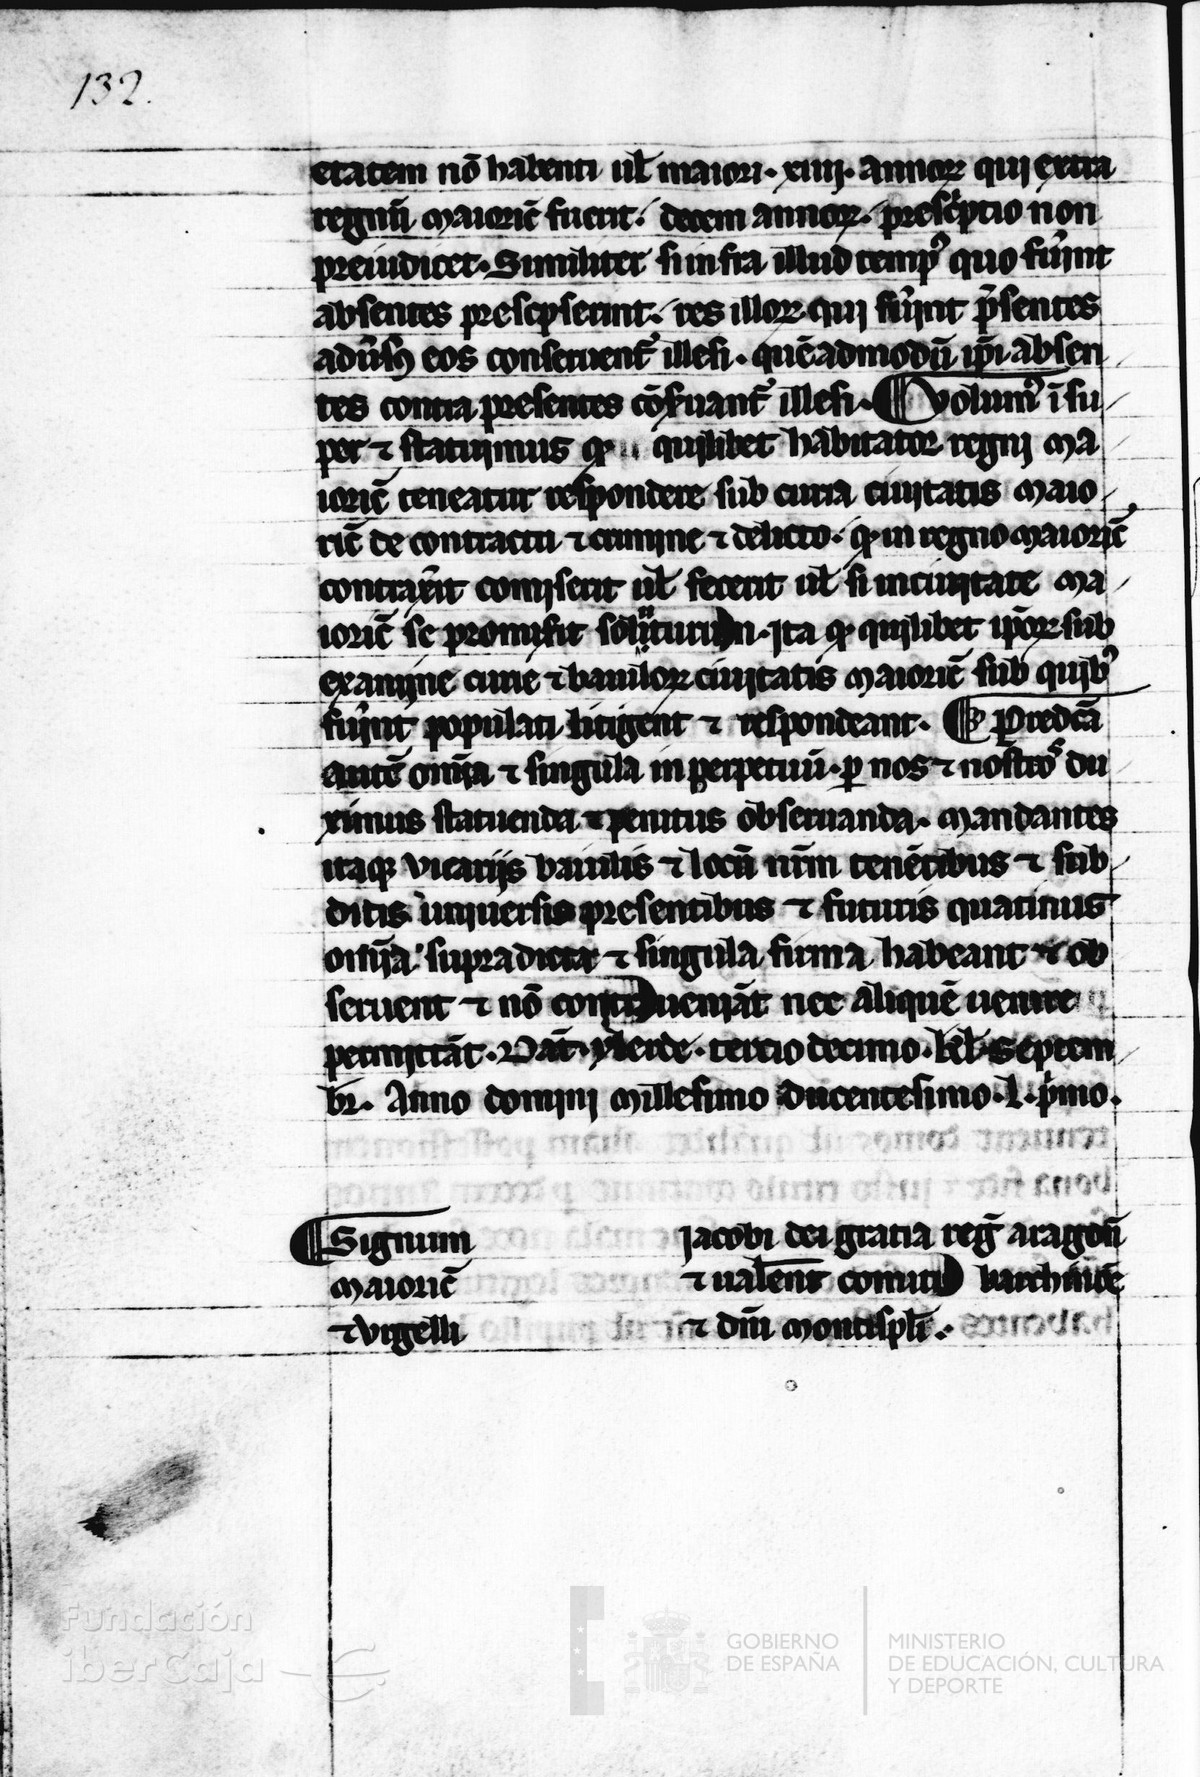 132.
etatem nō habenti ul̄ maiori · xiiij · annoꝝ qui extra
regnū maioric̄ fuerit · decem annoꝝ · prescͥptio non
preiudicet · Similiter si infra illud tempꝰ quo fu͛int
absentes prescͥpserint · res illoꝝ qui fu͛int p̄sentes
adu͛sꝰ eos conseruent᷑ illesi · quēadmodū ip̄i absen
tes contra presentes cōs͛uant᷑ illesi · ¶ Volumꝰ īsu
per ⁊ statuimus ꝙ quilibet habitator regni ma
ioric̄ teneatur respondere sub curia ciuitatis maio
ric̄ de contractu ⁊ crimine ⁊ delicto · ꝙ in regno maioric̄
contrax͛it comiserit ul̄ fecerit ul̄ si in ciuitate ma
ioric̄ se promisit soluturum · ita ꝙ quilibet ip̄oꝝ sub
examine curie ⁊ bauiloꝝ ciuitatis maioric̄ sub quibꝰ
fu͛int populati litigent ⁊ respondeant · ¶ Predc̄a
autē om̄ia ⁊ singula in perpetuū · ꝑ nos ⁊ nostrͦs du
ximus statuenda ⁊ penitus obseruanda · mandantes
itaqꝫ vicariis bauilis ⁊ locū nr̄m tenētibus ⁊ sub
ditis uniuersis presentibus ⁊ futuris quatinus
om̄ia supradicta ⁊ singula firma habeant ⁊ ob
seruent ⁊ nō contraueniāt nec aliquē uenire
permittāt · Dat̄ · ylerde · tercio decimo · kl̄ · Septem
br̄ · Anno domini millesimo ducentesimo · L · pͥmo ·
¶ Signum Jacobi dei gratia reḡ aragoñ
maioric̄ ⁊ ualent̄ comitis barchinōe
⁊ vrgelli ⁊ dn̄i montispl̄i ·
Fundación
iberCaja
GOBIERNO
DE ESPAÑA
MINISTERIO
DE EDUCACIÓN, CULTURA
Y DEPORTE